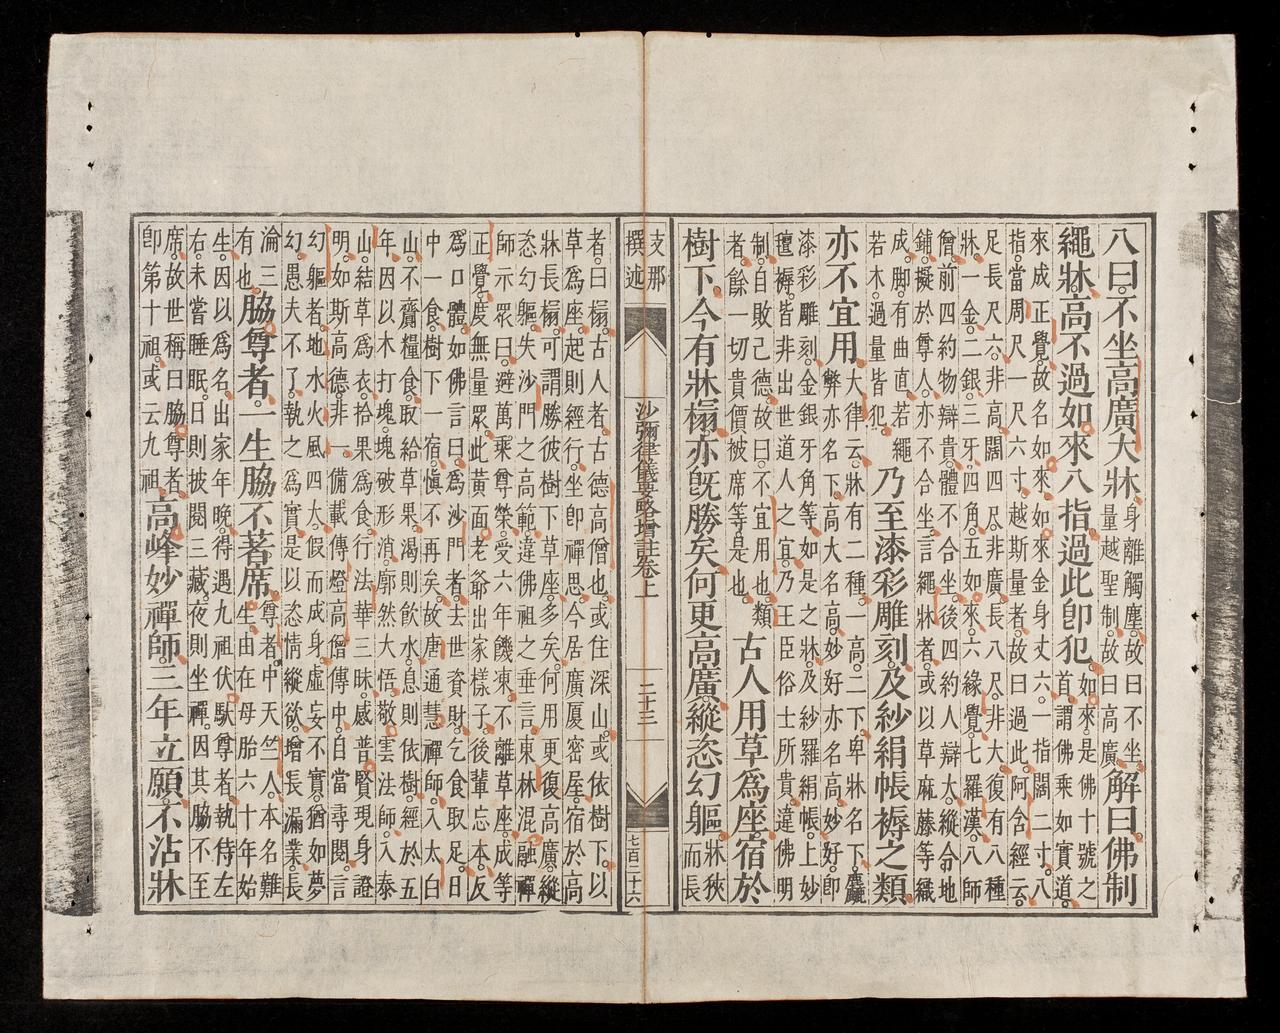 八曰。不坐高廣大牀。身離觸塵。故曰不坐。
量越聖制。故曰高廣。解曰。佛制
繩牀。高不過如來八指。過此卽犯。如來。是佛十號之
首。謂佛乘如實道。
來成正覺。故名如來。如來金身丈六。一指闊二寸。八
指。當周尺一尺六寸。越斯量者。故曰過此。阿含經云。
足長尺六。非高。闊四尺。非廣。長八尺。非大。復有八種
牀。一金。二銀。三牙。四角。五如來。六緣覺。七羅漢。八師
僧。前四約物辯貴。體不合坐。後四約人辯大。縱令地
鋪。擬於尊人。亦不合坐。言繩牀者。或以草麻藤等織
成。脚有曲直。若繩
若木。過量皆犯。乃至漆彩雕刻。及紗絹帳褥之類。
亦不宜用。大律云。牀有二種。一高。二下。卑牀名下。麤
弊亦名下。高大名高。妙好亦名高。妙好。卽
漆彩雕刻。金銀牙角等。如是之牀。及紗羅絹帳。上妙
氈褥。皆非出世道人之宜。乃王臣俗士所貴。違佛明
制。自敗己德。故曰不宜用也。類
者。餘一切貴價被席等是也。古人用草爲座。宿於
樹下。今有牀榻。亦旣勝矣。何更高廣。縱恣幻軀。牀狹
而長
支那
撰述
沙彌律儀要略增註卷上
二十三
七百二十六
者。曰榻。古人者。古德高僧也。或住深山。或依樹下。以
草爲座。起則經行。坐卽禪思。今居廣厦密屋。宿於高
牀長榻。可謂勝彼樹下草座。多矣。何用更復高廣。縱
恣幻軀。失沙門之高範。違佛祖之垂言。東林混融禪
師示眾曰。避萬乘尊榮。受六年饑凍。不離草座。成等
正覺。度無量眾。此黃面老爺出家樣子。後輩忘本。反
爲口體。如佛言曰。爲沙門者。去世資財。乞食取足。日
中一食。樹下一宿。慎不再矣。故唐通慧禪師。入太白
山。不齎糧食。取給草果。渴則飲水。息則依樹。經於五
年。因以木打塊。塊破形消。廓然大悟。敬雲法師。入泰
山。結草爲衣。拾果爲食。行法華三昧。感普賢現身證
明。如斯高德。非一。備載傳燈高僧傳中。自當尋閱。言
幻軀者。地水火風四大。假而成身。虛妄不實。猶如夢
幻。愚夫不了。執之爲實。是以恣情縱欲。增長漏業。長
淪三
有也。脇尊者。一生脇不著席。尊者。中天竺人。本名難
生。由在母胎六十年始
生。因以爲名。出家年晚。得遇九祖伏馱尊者。執侍左
右。未嘗睡眠。日則披閱三藏。夜則坐禪。因其脇不至
席。故世稱曰脇尊者。
卽第十祖。或云九祖。高峰妙禪師。三年立願。不沾牀